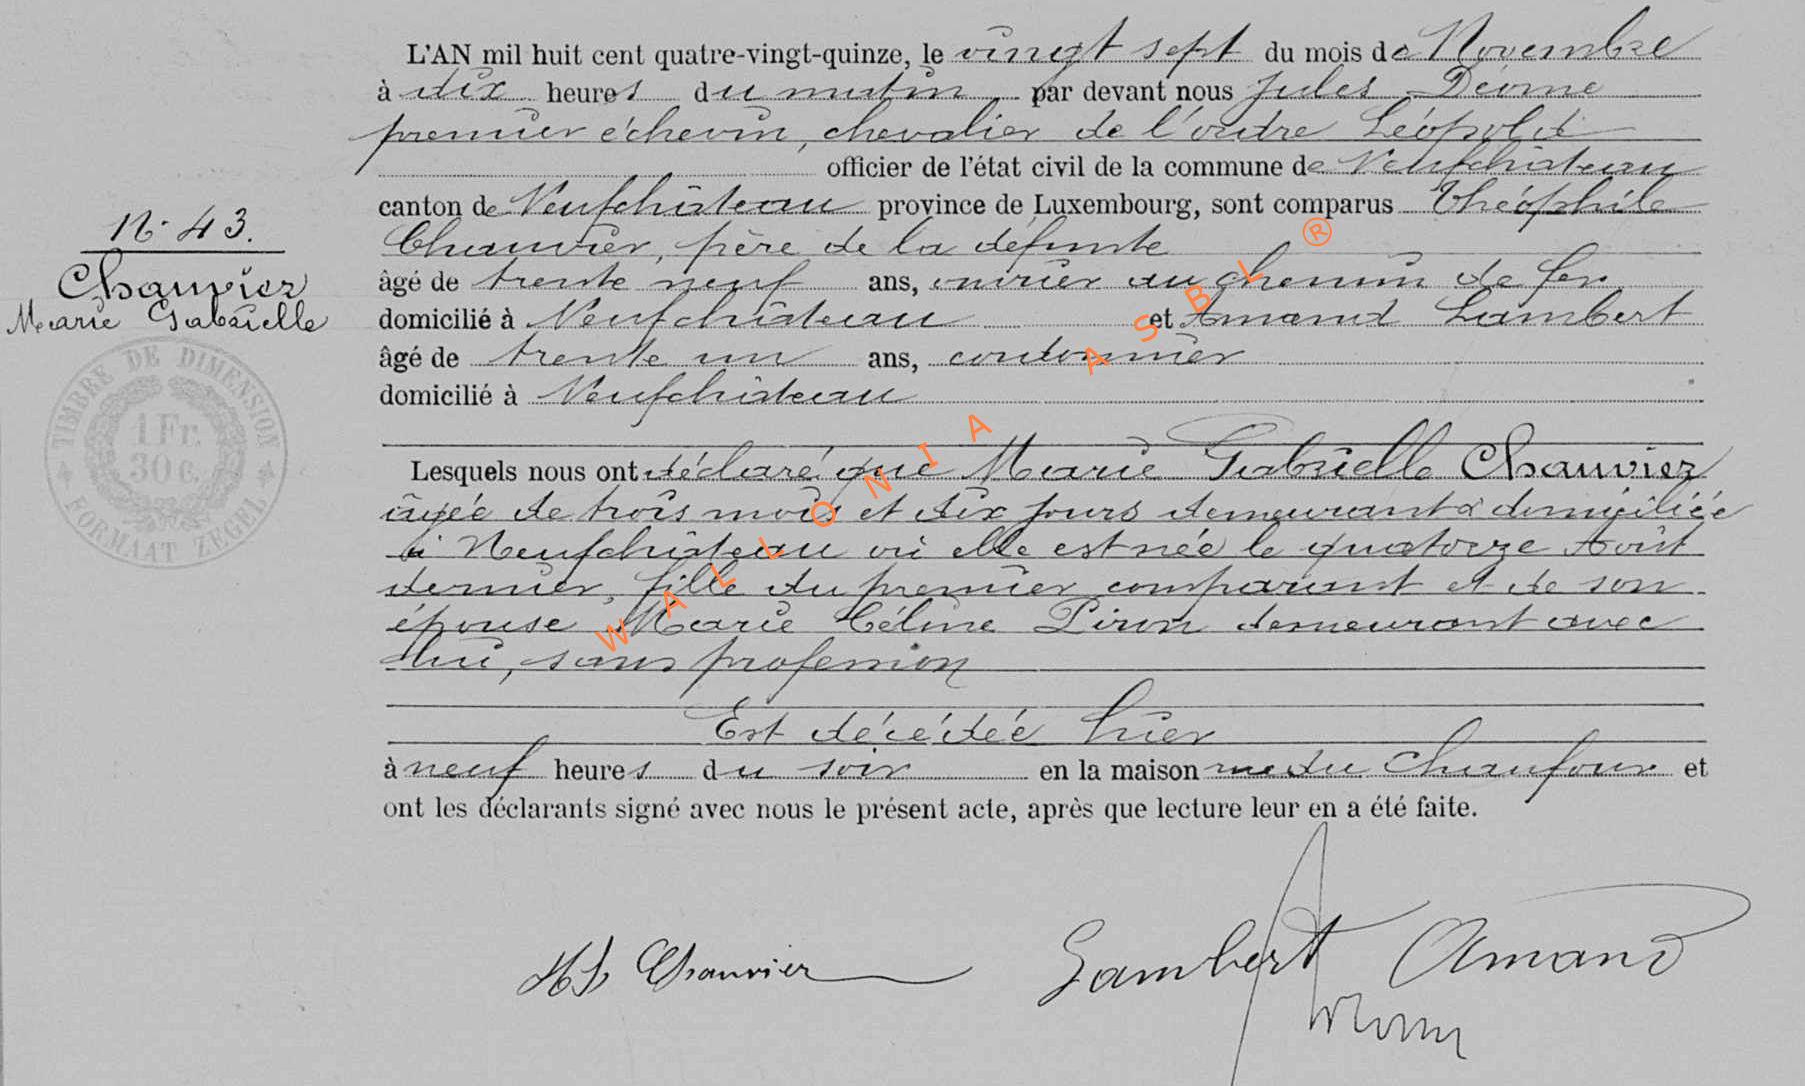 L'AN mil huit cent quatre-vingt-quinze, le vingt sept du mois de Novembre
à dix heures du matin par devant nous Jules
premier échevin, chevalier de l'ordre Léopold
officier de l'état civil de la commune de Neufchâteau
canton de Neufchâteau province de Luxembourg, sont comparus Théophile
Chauvier, père de la défunte
âgé de trente neuf ans, ouvrier au chemin de fer
domicilié à Neufchâteau et Amand Lambert
âgé de trente un ans, cordonnier
domicilié à Neufchâteau
N° 43.
Chauvier
Marie Gabrielle
TIMBRE DE DIMENSION
1 Fr.
30 c.
FORMAAT ZEGEL
Lesquels nous ont déclaré que Marie Gabrielle Chauvier
âgée de trois mois et dix jours demeurant & domiciliée
à Neufchâteau où elle est née le quatorze Août
dernier, fille du premier comparant et de son
épouse Marie Céline Piron demeurant avec
lui, sans profession
Est décédée hier
à neuf heures du soir en la maison rue du Chaufour et
ont les déclarants signé avec nous le présent acte, après que lecture leur en a été faite.
Chauvier Lambert Amand
WALLONIA ASBL ®